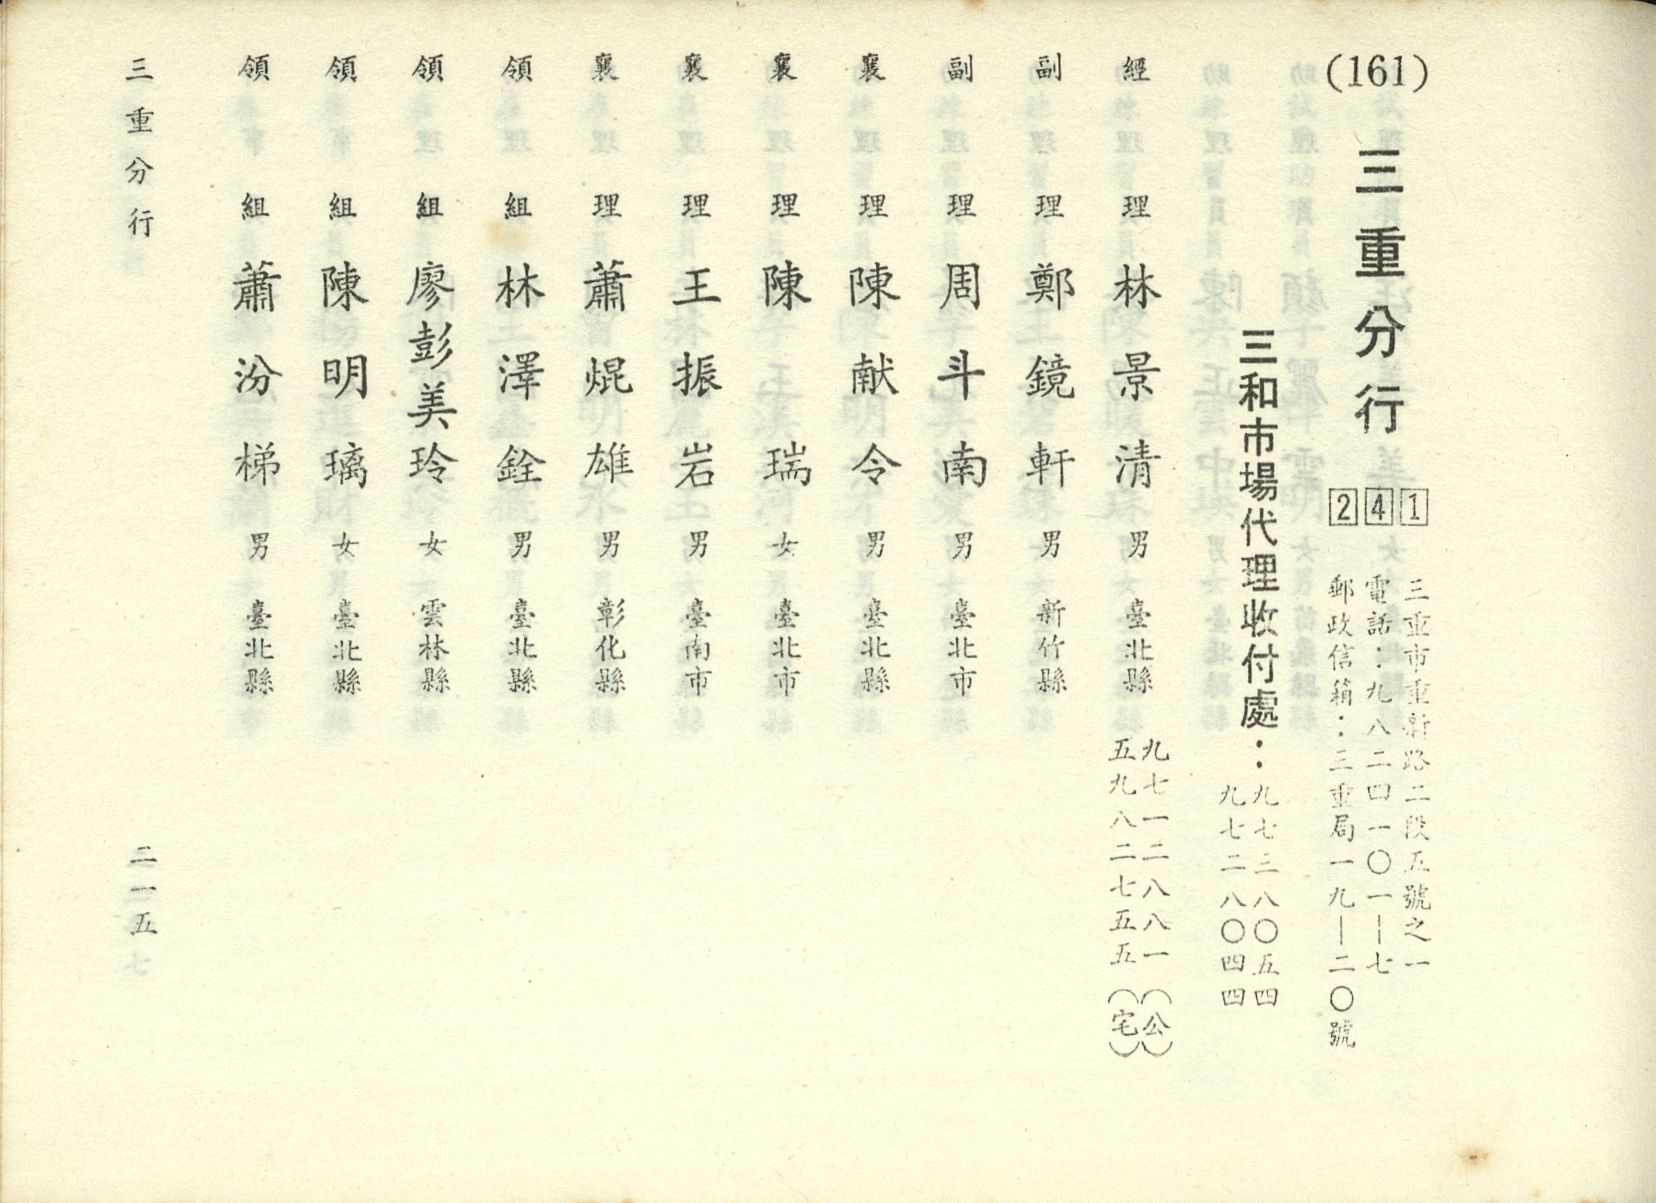 (161)
三重分行
241
三重市重新路二段五號之一
電話：九八二四一〇一—七
郵政信箱：三重局一九—二〇號
三和市場代理收付處：
九七二八〇五四
九七二八〇四四
經理 林景清 男 臺北縣
九七一二八八一（公）
五九八二七五五（宅）
副理 鄭鏡軒 男 新竹縣
副理 周斗南 男 臺北市
襄理 陳献令 男 臺北縣
襄理 陳瑞 女 臺北市
襄理 王振岩 男 臺南市
襄理 蕭焜雄 男 彰化縣
領組 林澤銓 男 臺北縣
領組 廖彭美玲 女 雲林縣
領組 陳明璃 女 臺北縣
領組 蕭汾梯 男 臺北縣
三重分行
二一五